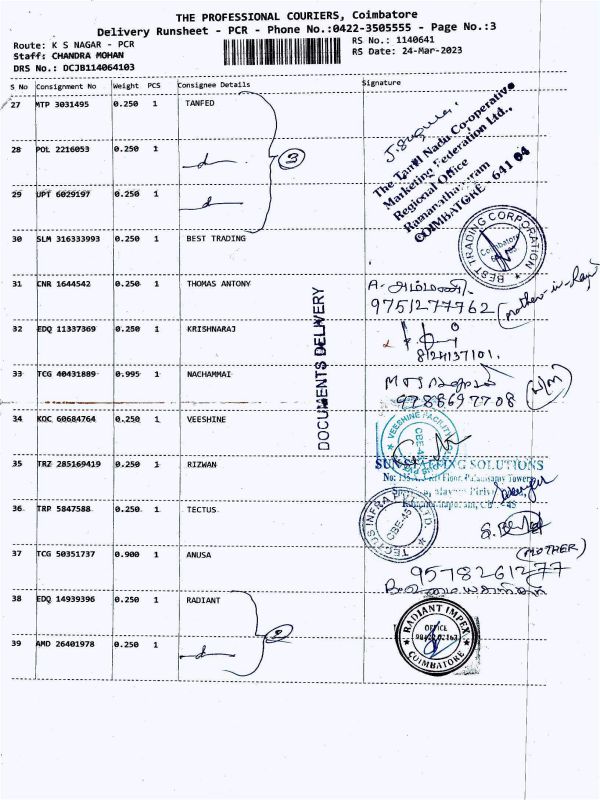 THE PROFESSIONAL COURIERS, Coimbatore
Delivery Runsheet - PCR - Phone No.:0422-3505555 - Page No.:3
Route: K S NAGAR - PCR
Staff: CHANDRA MOHAN
DRS No.: DCJB114064103
RS No.: 1140641
RS Date: 24-Mar-2023
S No Consignment No Weight PCS Consignee Details Signature
27 MTP 3031495 0.250 1 TANFED
28 POL 2216053 0.250 1
3
29 UPT 6029197 0.250 1
The Tamil Nadu Co-operative
Marketing Federation Ltd.,
Regional Office
Ramanathapuram
COIMBATORE - 641 04
30 SLM 316333993 0.250 1 BEST TRADING
BEST TRADING CORPORATION
Coimbatore
31 CNR 1644542 0.250 1 THOMAS ANTONY
A. அம்மணி
9751277762 (mother-in-law)
DOCUMENTS DELIVERY
32 EDQ 11337369 0.250 1 KRISHNARAJ
8124137101.
33 TCG 40431889 0.995 1 NACHAMMAI
9788697708
34 KOC 60684764 0.250 1 VEESHINE
VEESHINE FACILITI
CBE-45
35 TRZ 285169419 0.250 1 RIZWAN
SUN STAFFING SOLUTIONS
Floor, Palanisamy Towers
36 TRP 5847588 0.250 1 TECTUS
TECTUS INFRA PVT LTD
CBE-45
37 TCG 50351737 0.900 1 ANUSA
(MOTHER)
9578261277
38 EDQ 14939396 0.250 1 RADIANT
2
RADIANT IMPEX
OFFICE
COIMBATORE
39 AMD 26401978 0.250 1